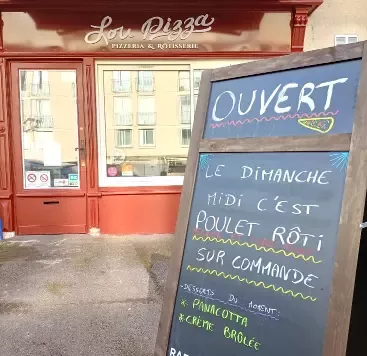 Lou Pizza
PIZZERIA & RÔTISSERIE
OUVERT
LE DIMANCHE
MIDI C'EST
POULET RÔTI
SUR COMMANDE
- DESSERTS DU MOMENT -
* PANACOTTA
* CRÈME BRÛLÉE